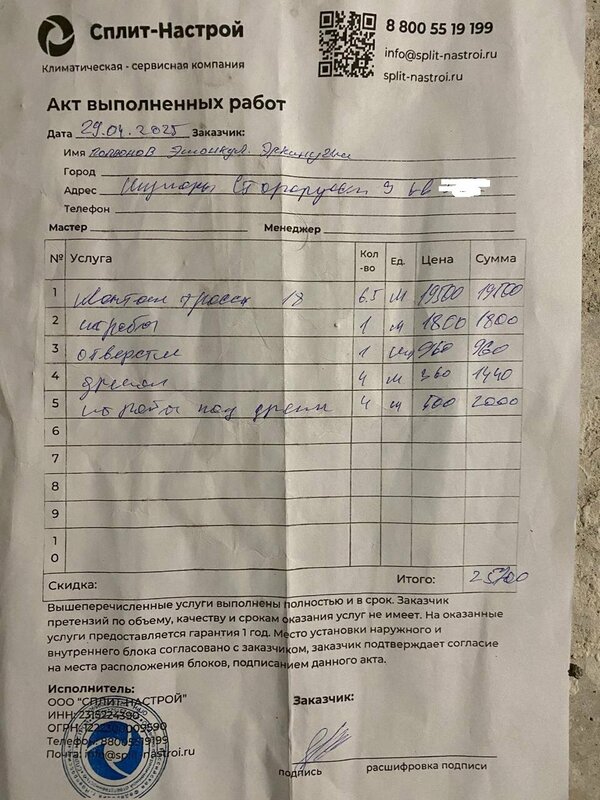 Сплит-Настрой
Климатическая - сервисная компания
8 800 55 19 199
info@split-nastroi.ru
split-nastroi.ru
Акт выполненных работ
Дата 29.04.2025 Заказчик:
Имя
Город
Адрес 9 кв
Телефон
Мастер Менеджер
№ Услуга Кол-во Ед. Цена Сумма
1 Монтаж трасса 18 6.5 м 19500 19500
2 короба 1 м 1800 1800
3 отверстие 1 шт 960 960
4 дренаж 4 м 360 1440
5 короба под дренаж 4 500 2000
6
7
8
9
10
Скидка: Итого: 25700
Вышеперечисленные услуги выполнены полностью и в срок. Заказчик
претензий по объему, качеству и срокам оказания услуг не имеет. На оказанные
услуги предоставляется гарантия 1 год. Место установки наружного и
внутреннего блока согласовано с заказчиком, заказчик подтверждает согласие
на места расположения блоков, подписанием данного акта.
Исполнитель:
ООО "СПЛИТ-НАСТРОЙ"
ИНН: 2315224390
ОГРН: 1222300009590
Телефон: 88005519199
Почта: info@split-nastroi.ru
Заказчик:
подпись расшифровка подписи